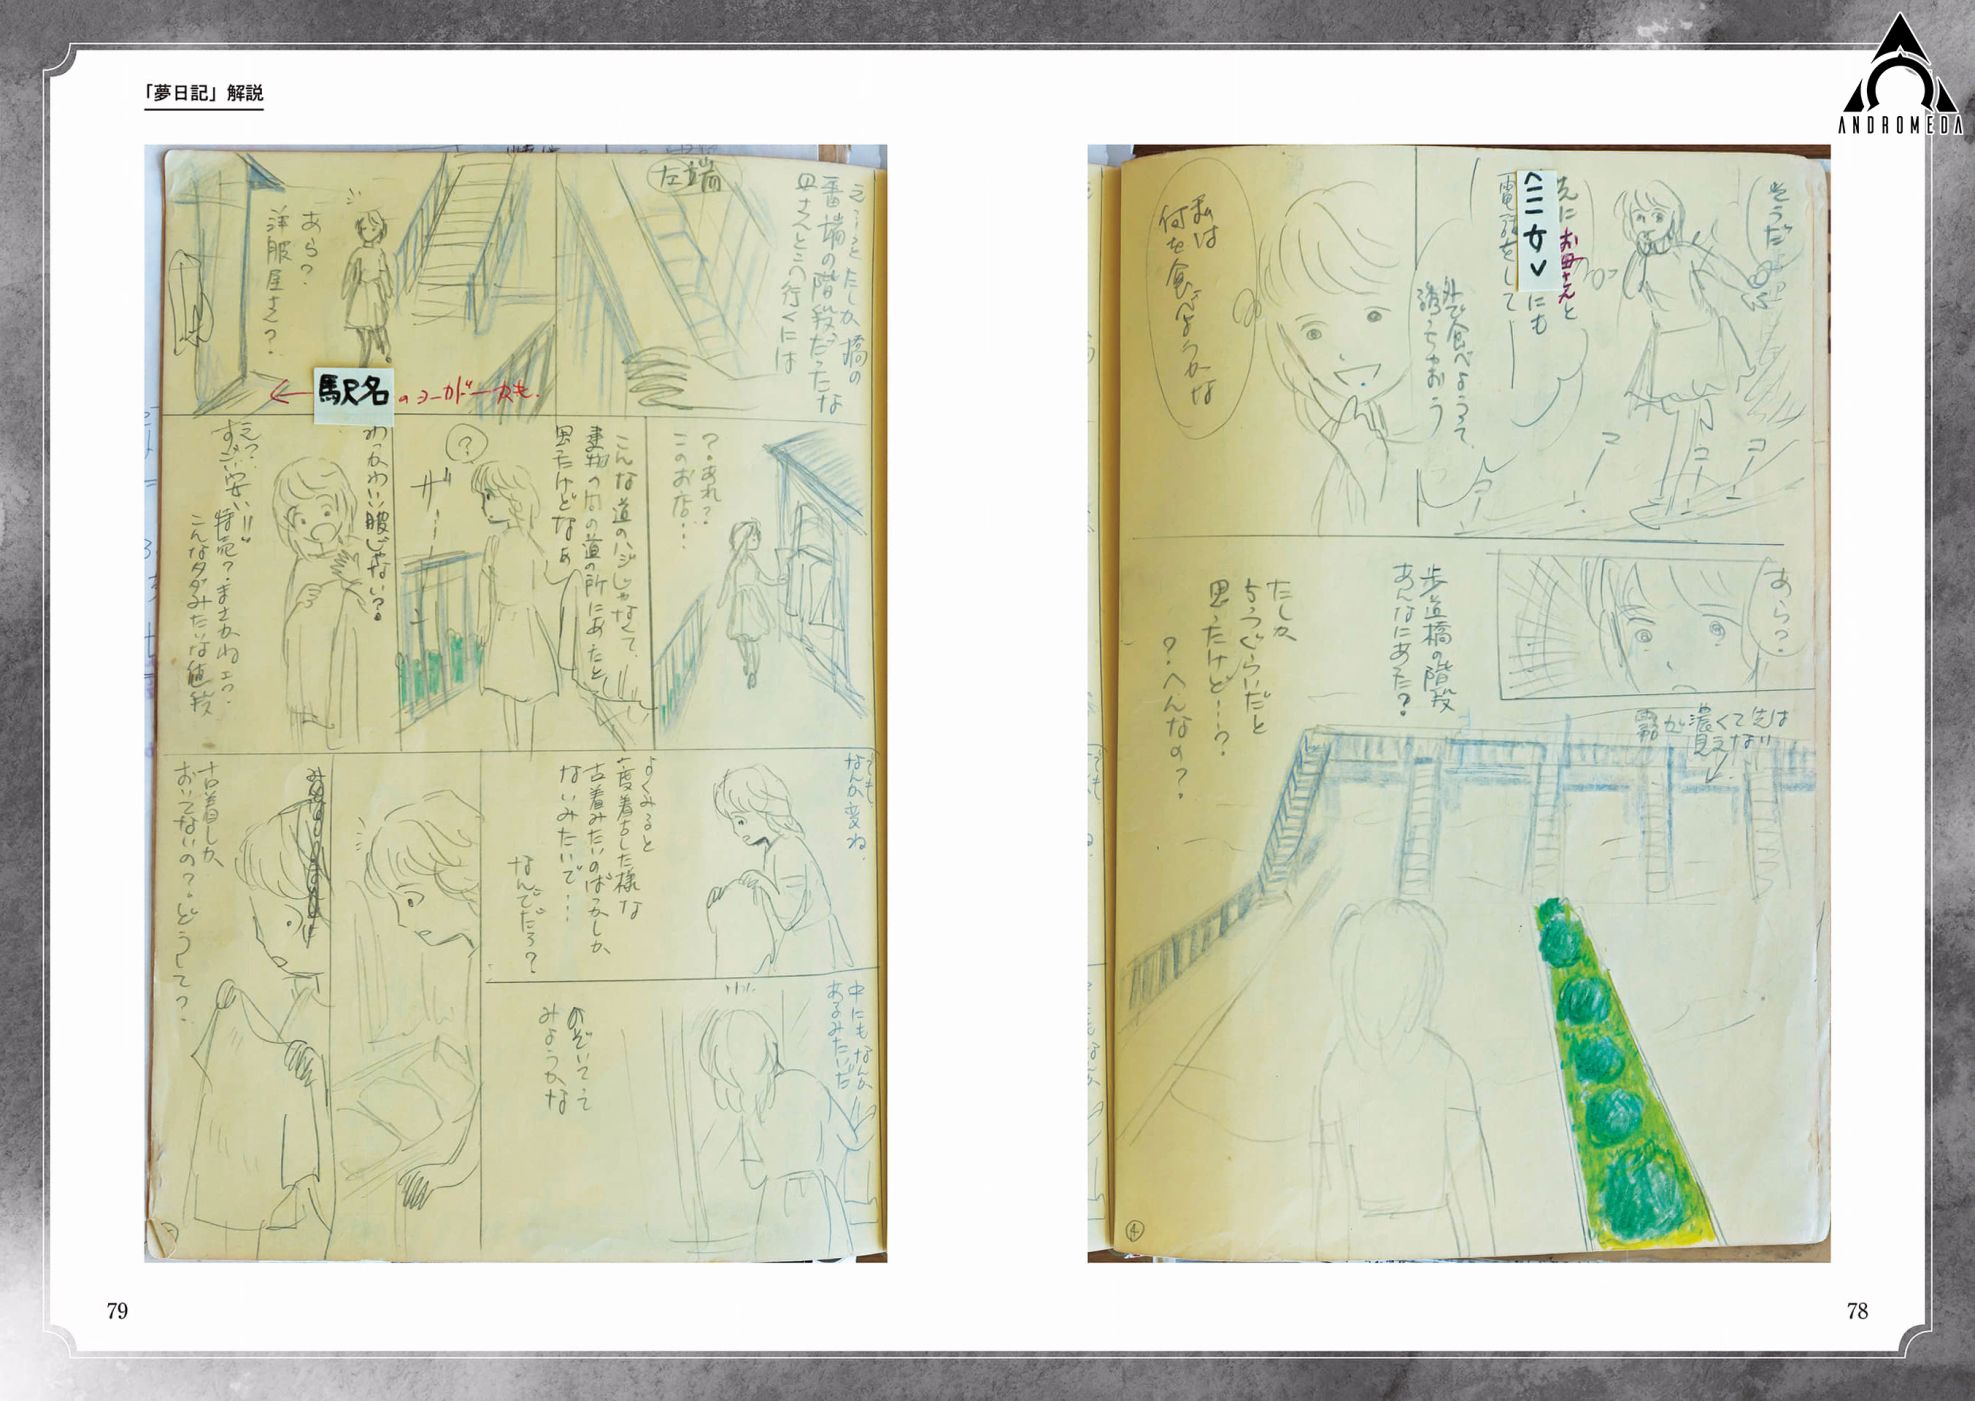 「夢日記」解説
ANDROMEDA
そうだ
先にお母さんと
<三女>にも
電話をして
外で食べようって
誘っちゃおう
私は
何を食べようかな
コ
コ
コ
あら?
歩道橋の階段
あんなにあった?
たしか
思ったけど…?
?へんなの?
霧が濃くて先は
見えない
4
78
え…とたしか橋の
一番端の階段だったな
母さんとこへ行くには
左端
あら?
洋服屋さん?
駅名
?あれ?
このお店…
こんな道のハジじゃなくて、
建物の間の道の所にあったと
思ったけどなぁ
?
わっかわいい服じゃない?
え?
すっごい安い!!
特売?まさかねェ?
こんなタダみたいな値段
でも
なんか変ね、
よくみると
一度着古した様な
古着みたいのばっかしか、
ないみたいで…
なんでだろ?
中にもなんか
あるみたいだ
のぞいて
みようかな
古着しか、
おいてないの?どうして?
79